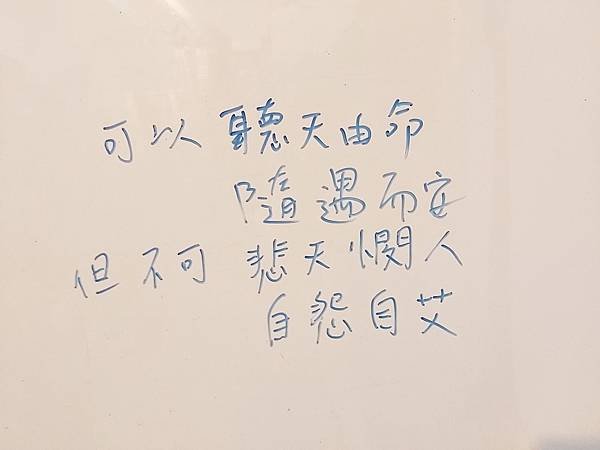 可以聽天由命
隨遇而安
但不可悲天憫人
自怨自艾